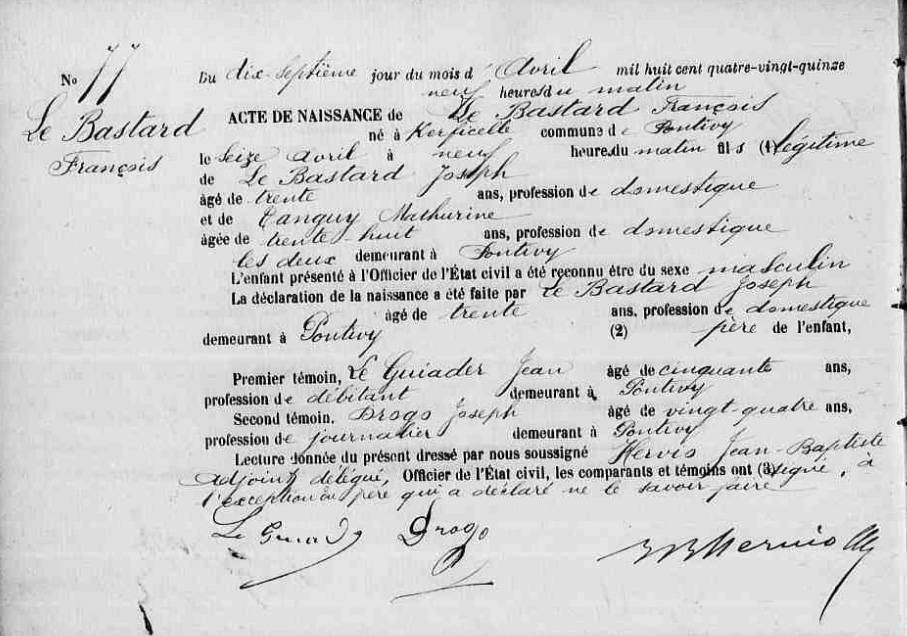 No 77
Le Bastard
François
Du dix-septième jour du mois d'Avril mil huit cent quatre-vingt-quinze
neuf heures du matin
ACTE DE NAISSANCE de Le Bastard François
né à Kerficelle commune de Pontivy
le Seize avril à neuf heures du matin fils (1) Légitime
de Le Bastard Joseph
âgé de trente ans, profession de domestique
et de Tanguy Mathurine
agée de trente-huit ans, profession de domestique
les deux demeurant à Pontivy
L'enfant présenté à l'Officier de l'État civil a été reconnu être du sexe masculin
La déclaration de la naissance a été faite par Le Bastard Joseph
âgé de trente ans, profession de domestique
demeurant à Pontivy (2) père de l'enfant,
Premier témoin, Le Guiader Jean âgé de cinquante ans,
profession de débitant demeurant à Pontivy
Second témoin. Drogo Joseph âgé de vingt-quatre ans,
profession de journalier demeurant à Pontivy
Lecture donnée du présent dressé par nous soussigné Hervio Jean-Baptiste
adjoint délégué, Officier de l'État civil, les comparants et témoins ont (3) signé, à
l'exception du père qui a déclaré ne le savoir faire
Le Guiader Drogo JB Hervio